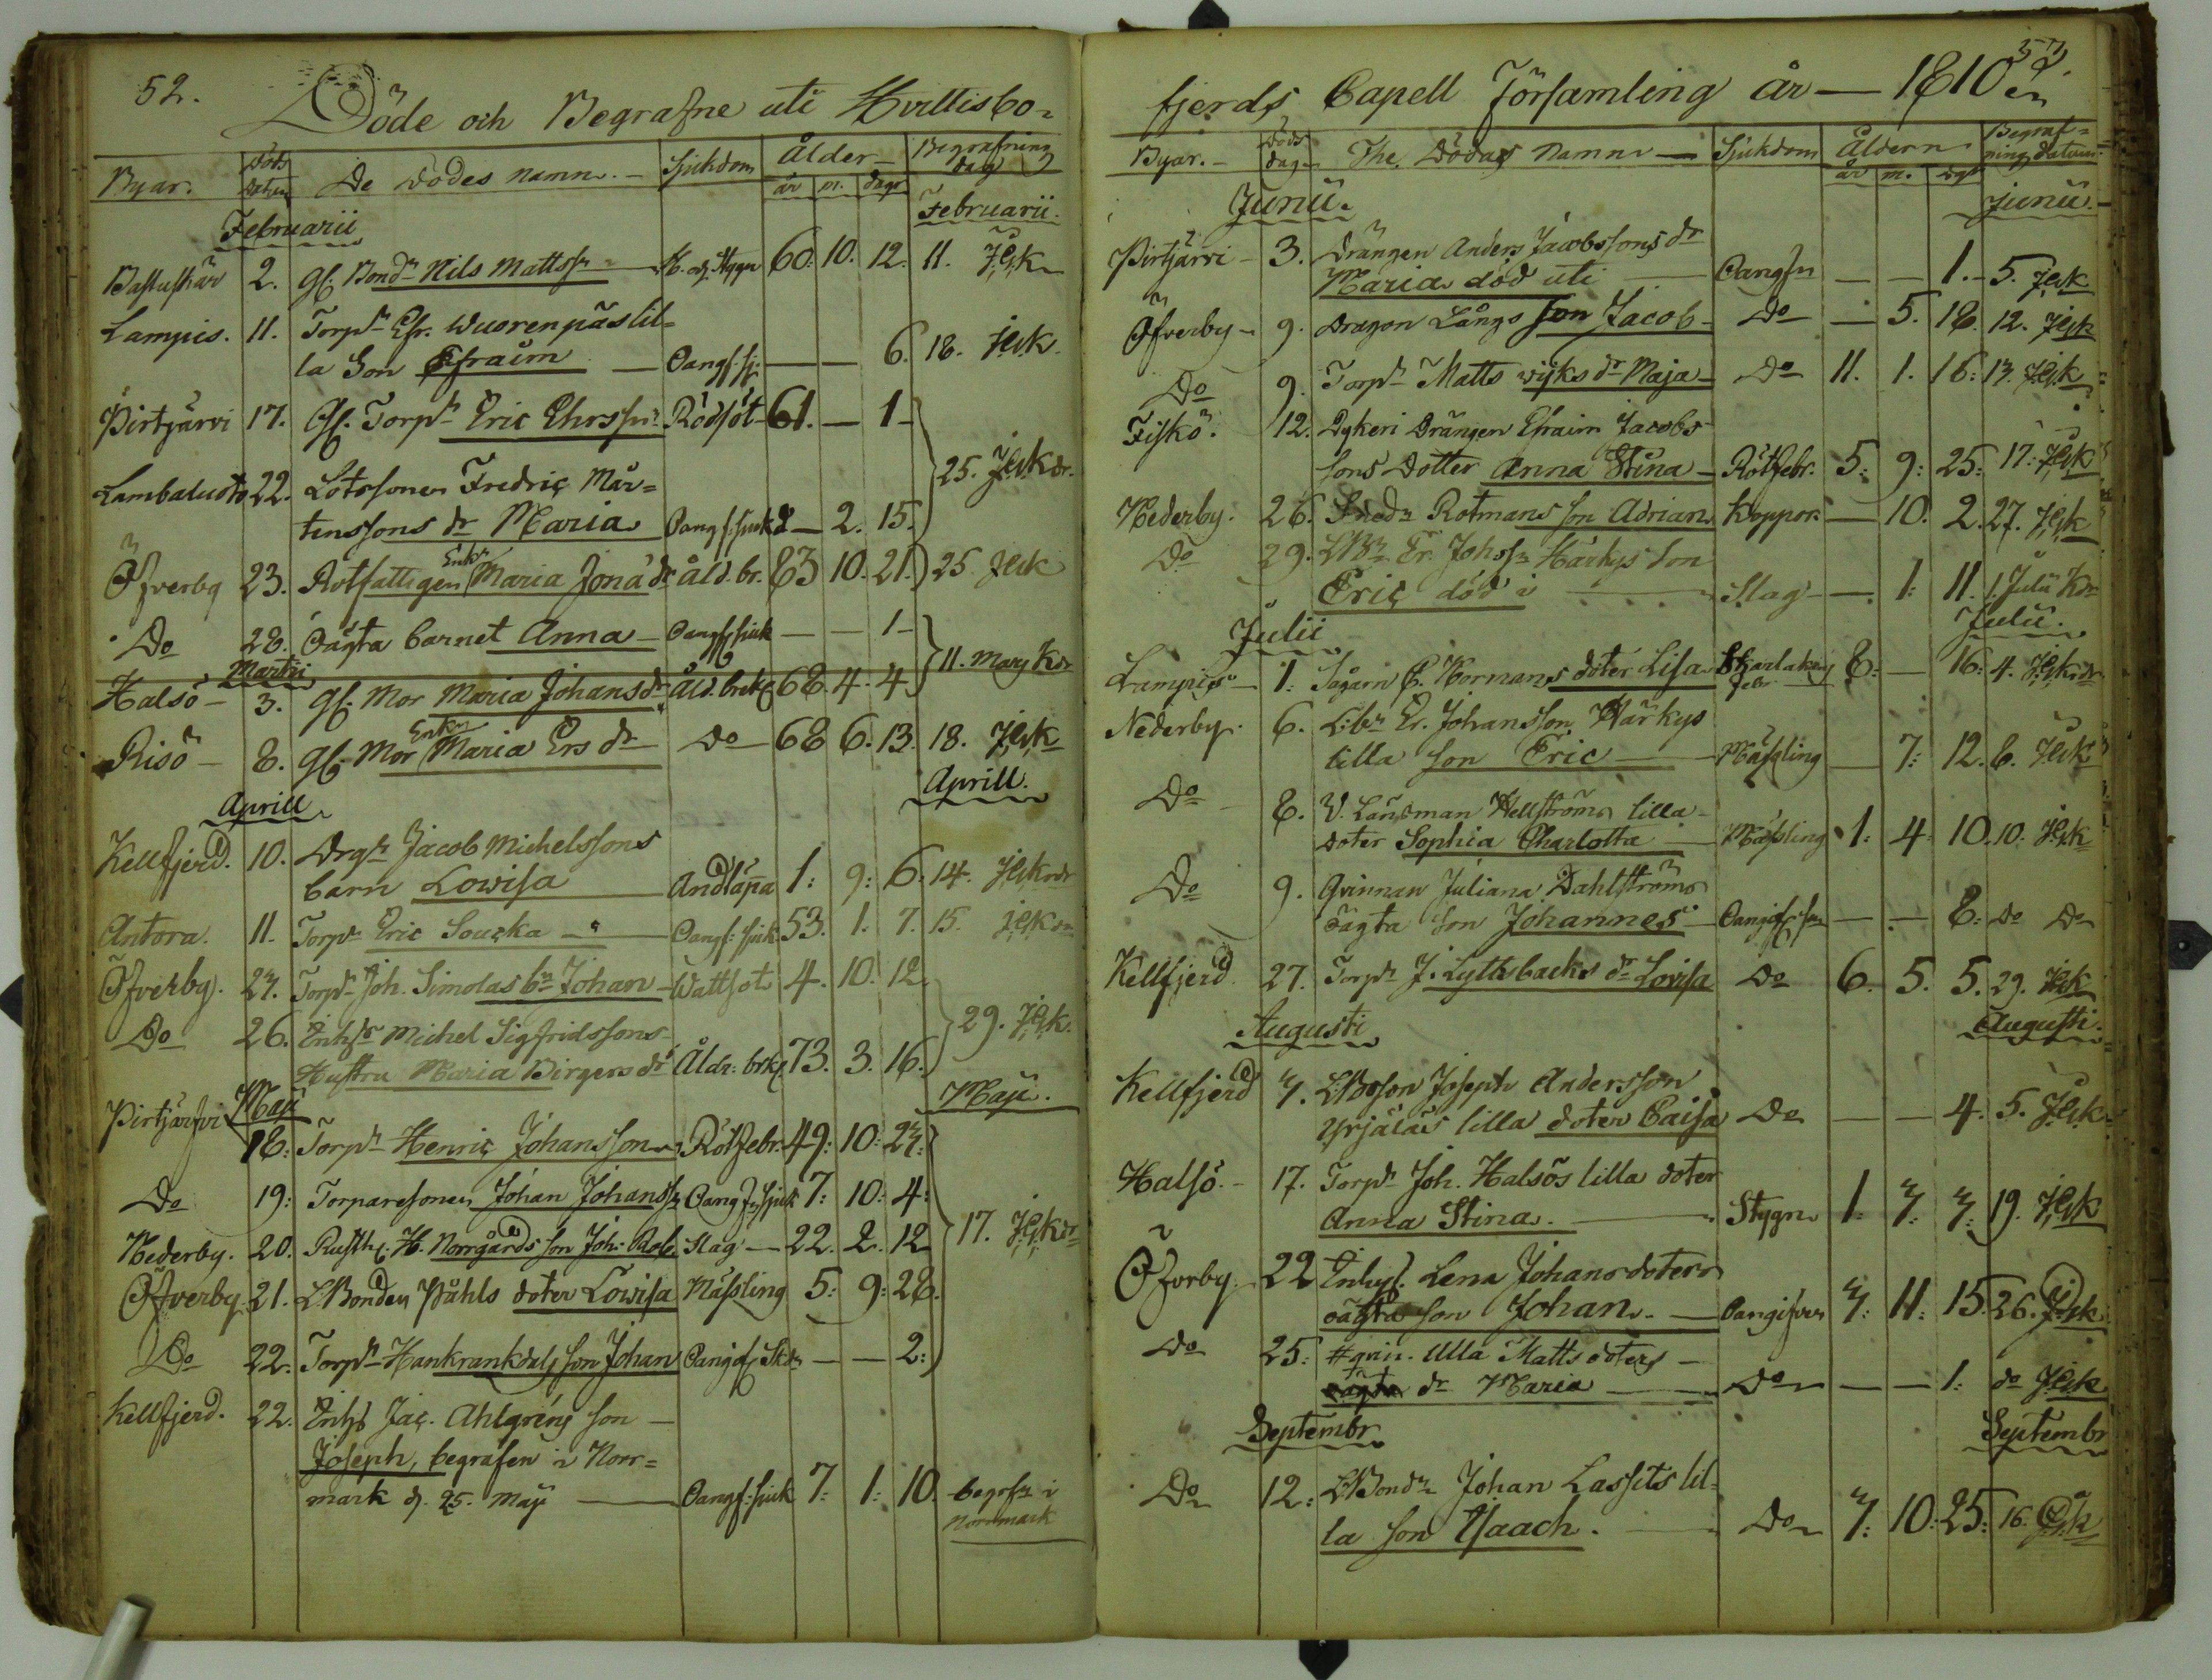 52.
Döde och Begrafne uti Hvittisbo=
Byar. Döds Datum De Dödes Namn. Sjukdom Ålder Begrafning dag
år m. dagr
Februarii Februarii.
Bastuskär 2. Gl. Bondn Nils Mattss. 60. 10. 12. 11.
Lampis. 11. Torpn Efr. Wuorenpäs lil=
la Son Efraim Oang. sj. — — 6. 18.
Pirtjärvi 17. Gl. Torpn Eric Ehrsn Rödsot 61. — 1
Lambaluoto 22. Lotssonen Fredric Mår= 25.
tenssons dr Maria Oang. sjuk — 2. 15.
Öfverby 23. Rotfattigen Enk. Maria Jona dr Åld. br. 83 10. 21. 25
Do 28. Oägta barnet Anna Oang. sjuk — — 1
Martii 11. Marj
Halsö 3. Gl. Mor Maria Johansdr Åld. brck 68. 4. 4
Risö 8. Gl. Mor Enk. Maria Ers dr Do 68 6. 13. 18.
Aprill Aprill.
Kellfjerd. 10. Drgn Jacob Michelssons
barn Lowisa Andtäppa 1: 9: 6. 14.
Antora. 11. Torpn Eric Soucka Oang. sjuk. 53. 1. 7. 15.
Öfverby. 24. Torpn Joh. Simolas Johan Wattsot 4. 10. 12.
Do 26. Michel Sigfridssons 29.
Hustru Maria Birgersdr Åldr. brk. 73. 3. 16.
Maji Maji.
Pirtjärfvi 18: Torpn Henric Johansson Rötfebr. 49: 10: 24:
Do 19: Torparesonen Johan Johanss Oang. sjuk 7: 10: 4:
Nederby. 20. Rusth. H. Norrgårds son Joh. Slag 22. 2. 12 17.
Öfverby. 21. LBonden Påhls doter Lowisa Mässling 5: 9: 28.
Do 22. Torpn Hankrankdals son Johan — — 2:
Kellfjerd. 22. Jac. Ahlgréns son
Joseph, begrafen i Norr=
mark d. 25. Maji Oang. sjuk 7: 1: 10. begrfn i
Norrmark
fjerds Capell Församling år — 1810
Byar. Döds dag The Dödas Namn Sjukdom Åldern Begraf=ning datum
år m. dgr
Junii. Junii.
Pirtjärvi 3. Drängen Anders Jacobssons dr
Maria död uti Oangfn — — 1. 5.
Öfverby 9. Dragon Långs son Jacob Do — 5. 18. 12.
Do 9. Torpn Matts wijks dr Maja Do 11. 1. 16: 14.
Fiskö. 12. Drängen Efraim Jacobs
sons Dotter Anna Stina Rötfebr. 5: 9: 25: 17:
Nederby. 26. Rotmans son Adrian Koppor. — 10. 2. 27.
Do 29. Er. Johss Härkys son
Eric död i Slag — 1: 11. 1. Julii
Julii Julii.
Lampis 1: Sågarn E. Normans doter Lisa Skarlakans febr 8: — 16: 4.
Nederby. 6. Er. Johansson Härkys
lilla son Eric Mässling — 7: 12. 8.
Do 8. V. Länsman Hellströms lilla
doter Sophia Charlotta Mässling 1: 4 10. 10:
Do 9. Qvinnan Juliana Dahlströms
oägta son Johannes — — 8: do Do
Kellfjerd 27. Torpn J. Lyttbacks dr Lovisa Do 6. 5. 5. 29.
Augusti Augusti.
Kellfjerd 4. Joseph Andersson
Yrjäläs lilla doter Caisa Do — — 4. 5.
Halsö. 17. Torpn Joh. Halsös lilla doter
Anna Stina. Stygn 1: 4: 4: 19.
Öfverby. 22 Inhys. Lena Johansdoters
oägta son Johan. Oangifven 4: 11: 15. 26.
Do 25: #qvin. Ulla Matts doters
oägta dr Maria Do — — 1: do
Septembr Septembr
Do 12: LBondn Johan Lassits lil=
la son Isaach. Do 4: 10: 25: 16.